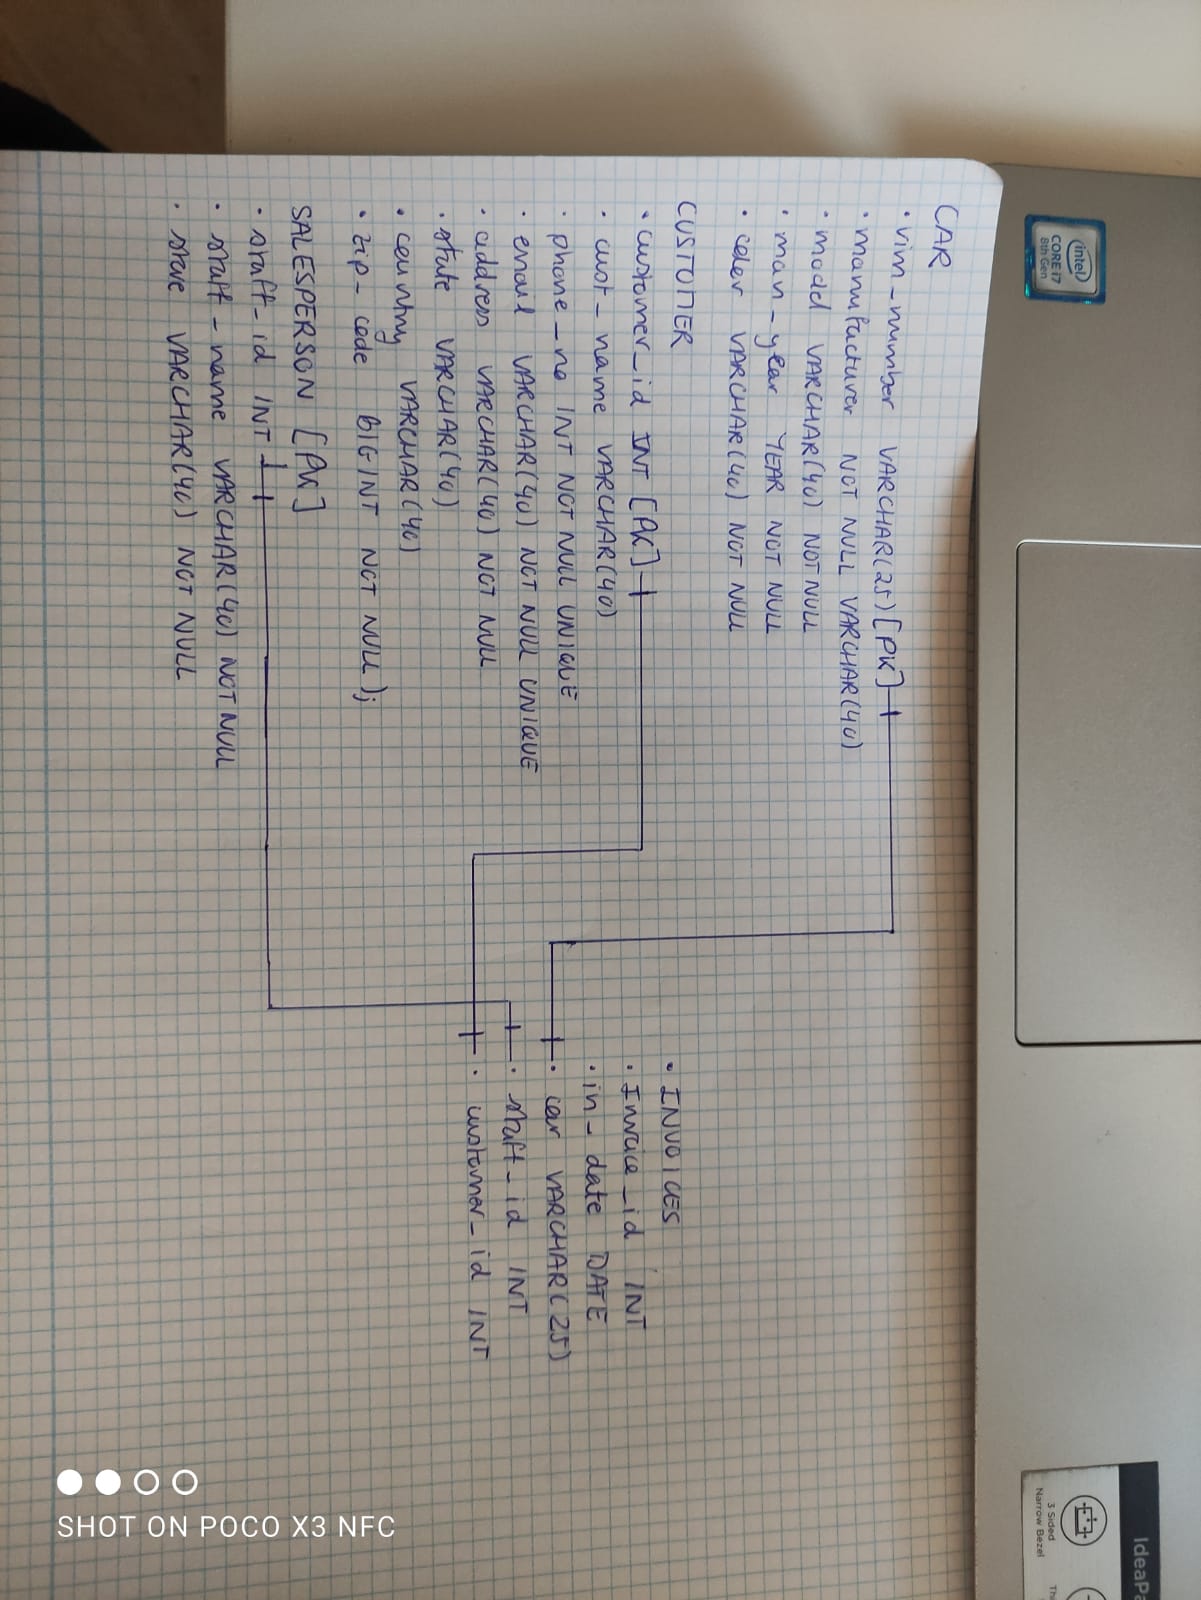 CAR
• vim_number VARCHAR(25) [PK]
• manufacturer NOT NULL VARCHAR(40)
• model VARCHAR(40) NOT NULL
• man_year YEAR NOT NULL
• color VARCHAR(40) NOT NULL
CUSTOMER
• customer_id INT [PK]
• cust_name VARCHAR(40)
• phone_no INT NOT NULL UNIQUE
• email VARCHAR(40) NOT NULL UNIQUE
• address VARCHAR(40) NOT NULL
• state VARCHAR(40)
• country VARCHAR(40)
• zip_code BIGINT NOT NULL);
SALESPERSON [PK]
• staff_id INT
• staff_name VARCHAR(40) NOT NULL
• store VARCHAR(40) NOT NULL
• INVOICES
• Invoice_id INT
• in_date DATE
• car VARCHAR(25)
• staff_id INT
• customer_id INT
intel
CORE i7
8th Gen
IdeaPa
3 Sided
Narrow Bezel
SHOT ON POCO X3 NFC